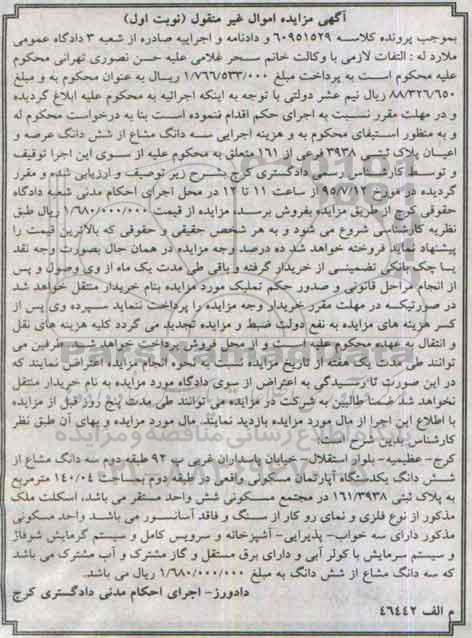 آگهی مزایده اموال غیر منقول (نوبت اول)
بموجب پرونده کلاسه ۶۰۹۵۱۵۲۹ و دادنامه و اجراییه صادره از شعبه ۳ دادگاه عمومی
ملارد له : التفات لازمی با وکالت خانم سحر غلامی علیه حسن نصوری تهرانی محکوم
علیه محکوم است به پرداخت مبلغ ۱/۷۶۶/۵۳۳/۰۰۰ ریسال به عنوان محکوم به و مبلغ
۸۸/۳۲۶/۶۵۰ ریال نیم عشر دولتی با توجه به اینکه اجرائیه به محکوم علیه ابلاغ گردیده
و در مهلت مقرر نسبت به اجرای حکم اقدام ننموده است بنا به درخواست محکوم له
و به منظور استیفای محکوم به و هزینه اجرایی سه دانگ مشاع از شش دانگ عرصه و
اعیان پلاک ثبتی ۳۹۳۸ فرعی از ۱۶۱ متعلق به محکوم علیه از سوی این اجرا توقیف
و توسط کارشناس رسمی دادگستری کرج بشرح زیر توصیف و ارزیابی شده و مقرر
گردیده در مورخ ۹۵/۷/۱۲ از ساعت ۱۱ تا ۱۲ در محل اجرای احکام مدنی شعبه دادگاه
حقوقی کرج از طریق مزایده بفروش برسد مزایده از قیمت ۱/۶۸۰/۰۰۰/۰۰۰ ریال طبق
نظریه کارشناسی شروع می شود و به هر شخص حقیقی و حقوقی که بالاترین قیمت را
پیشنهاد نماید فروخته خواهد شد ده درصد وجه مزایده در همان حال بصورت وجه نقد
یا چک بانکی تضمینی از خریدار گرفته و باقی طی مدت یک ماه از وی وصول و پس
از انجام مراحل قانونی و صدور حکم تملیک مورد مزایده بنام خریدار منتقل خواهد شد
در صورتیکه در مهلت مقرر خریدار وجه مزایده را پرداخت ننماید سپرده وی پس از
کسر هزینه های مزایده به نفع دولت ضبط و مزایده تجدید می گردد کلیه هزینه های نقل
و انتقال به عهده محکوم علیه است و از محل فروش پرداخت خواهد شد طرفین می
توانند طی مدت یک هفته از تاریخ مزایده نسبت به نحوه انجام مزایده اعتراض نمایند که
در این صورت تا رسیدگی به اعتراض از سوی دادگاه مورد مزایده به نام خریدار منتقل
نخواهد شد ضمنا طالبین به شرکت در مزایده می توانند طی مدت پنج روز قبل از مزایده
با اطلاع این اجرا از مال مورد مزایده بازدید نمایند. مال مورد مزایده و بهای آن طبق نظر
کارشناس بدین شرح است:
کرج- عظیمیه- بلوار استقلال- خیابان پاسداران غربی پ ۹۲ طبقه دوم سه دانگ مشاع از
شش دانگ یکدستگاه آپارتمان مسکونی واقعی در طبقه دوم بمساحت ۱۴۰/۰۴ مترمربع
به پلاک ثبتی ۱۶۱/۳۹۳۸ در مجتمع مسکونی شش واحد مستقر می باشد، اسکلت ملک
مذکور از نوع فلزی و نمای رو کار از سنگ و فاقد آسانسور می باشد واحد مسکونی
مذکور دارای سه خواب- پذیرایی- آشپزخانه و سرویس کامل و سیستم گرمایش شوفاژ
و سیستم سرمایش با کولر آبی و دارای برق مستقل و گاز مشترک و آب مشترک می باشد
که سه دانگ مشاع از شش دانگ به مبلغ ۱/۶۸۰/۰۰۰/۰۰۰ ریال می باشد.
دادورز- اجرای احکام مدنی دادگستری کرج
م الف ۴۶۴۴۲
ParsNamadData